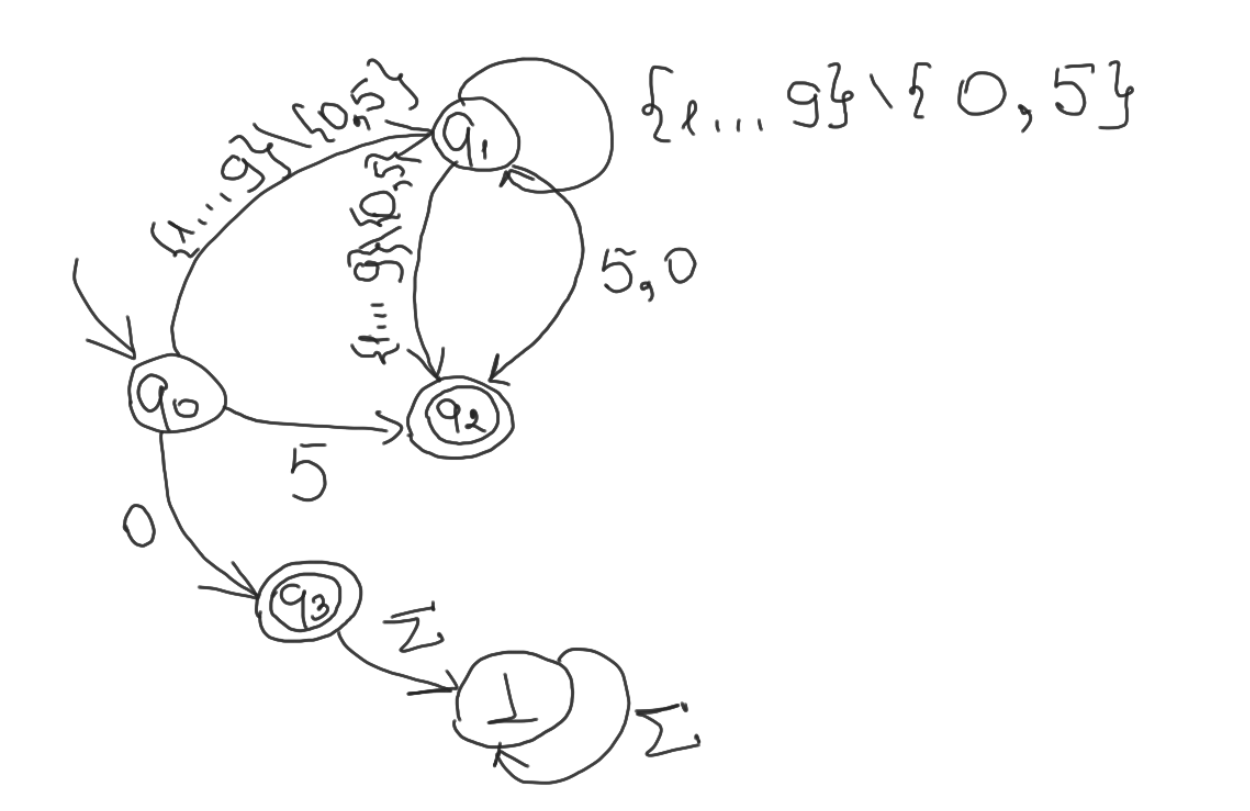 {1...9}\{0,5}
q1
{1...9}\{0,5}
{1...9}\{0,5}
5,0
q0
q2
5
0
q3
Σ
⊥
Σ